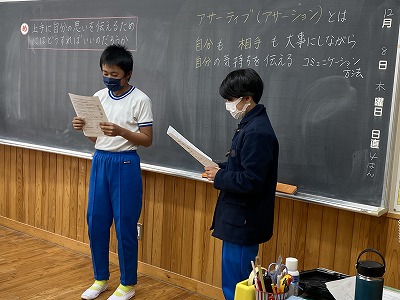 め 上手に自分の思いを伝えるため
にはどうすればいいのだろうか
アサーティブ(アサーション)とは
自分も 相手も 大事にしながら
自分の気持ちを伝える コミュニケーション
方法
12月8日木曜日 日直